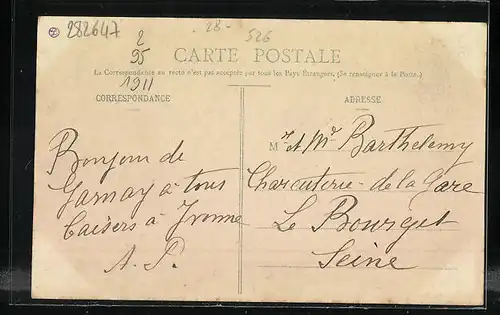 282647
2
95
1911
28-
526
CARTE POSTALE
La Correspondance au recto n'est pas acceptée par tous les Pays Etrangers. (Se renseigner à la Poste.)
CORRESPONDANCE
ADRESSE
Bonjour de
Garnay à tous
baisers à Yvonne
A. P.
Mr et Mde Barthelemy
Charcuterie - de la Gare
Le Bourget
Seine